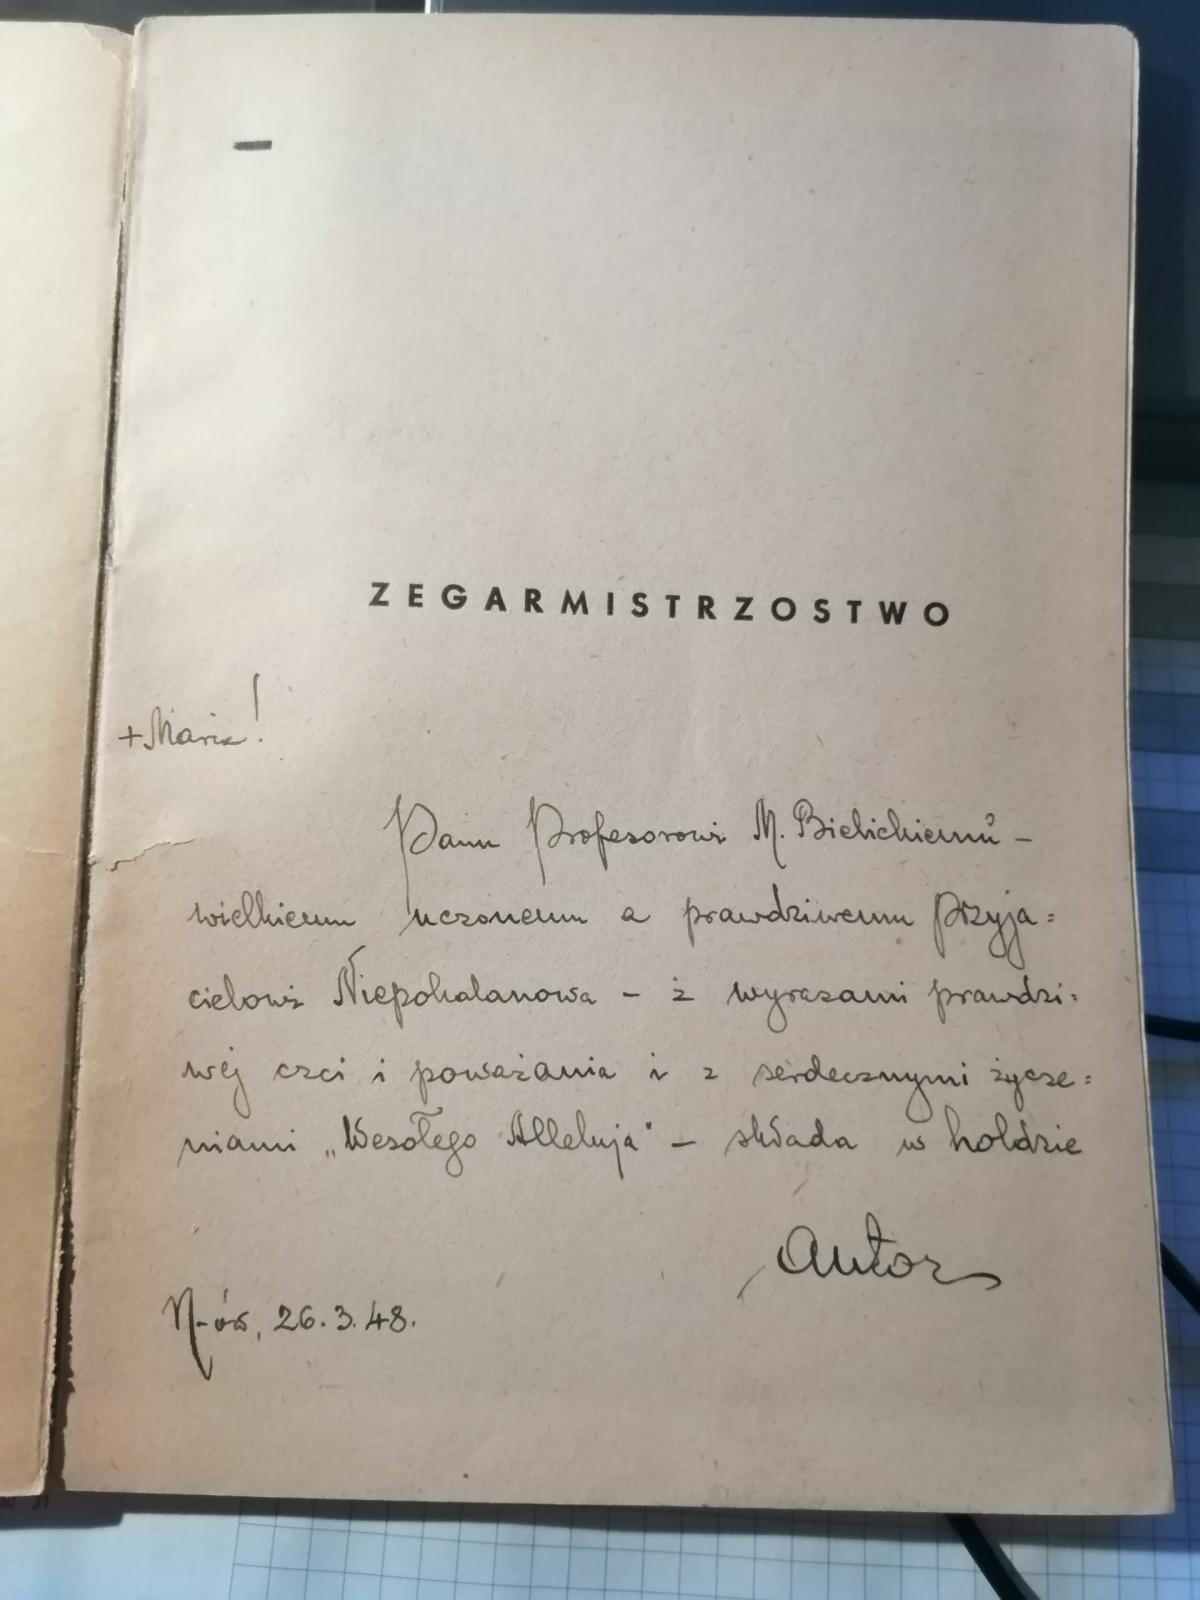 ZEGARMISTRZOSTWO
+Maria!
Panu Profesorowi M. Bielickiemu –
wielkiemu uczonemu a prawdziwemu Przyja=
cielowi Niepokalanowa – z wyrazami prawdzi=
wej czci i poważania i z serdecznymi życze=
niami „Wesołego Alleluja" – składa w hołdzie
Autor
N-ów, 26.3.48.